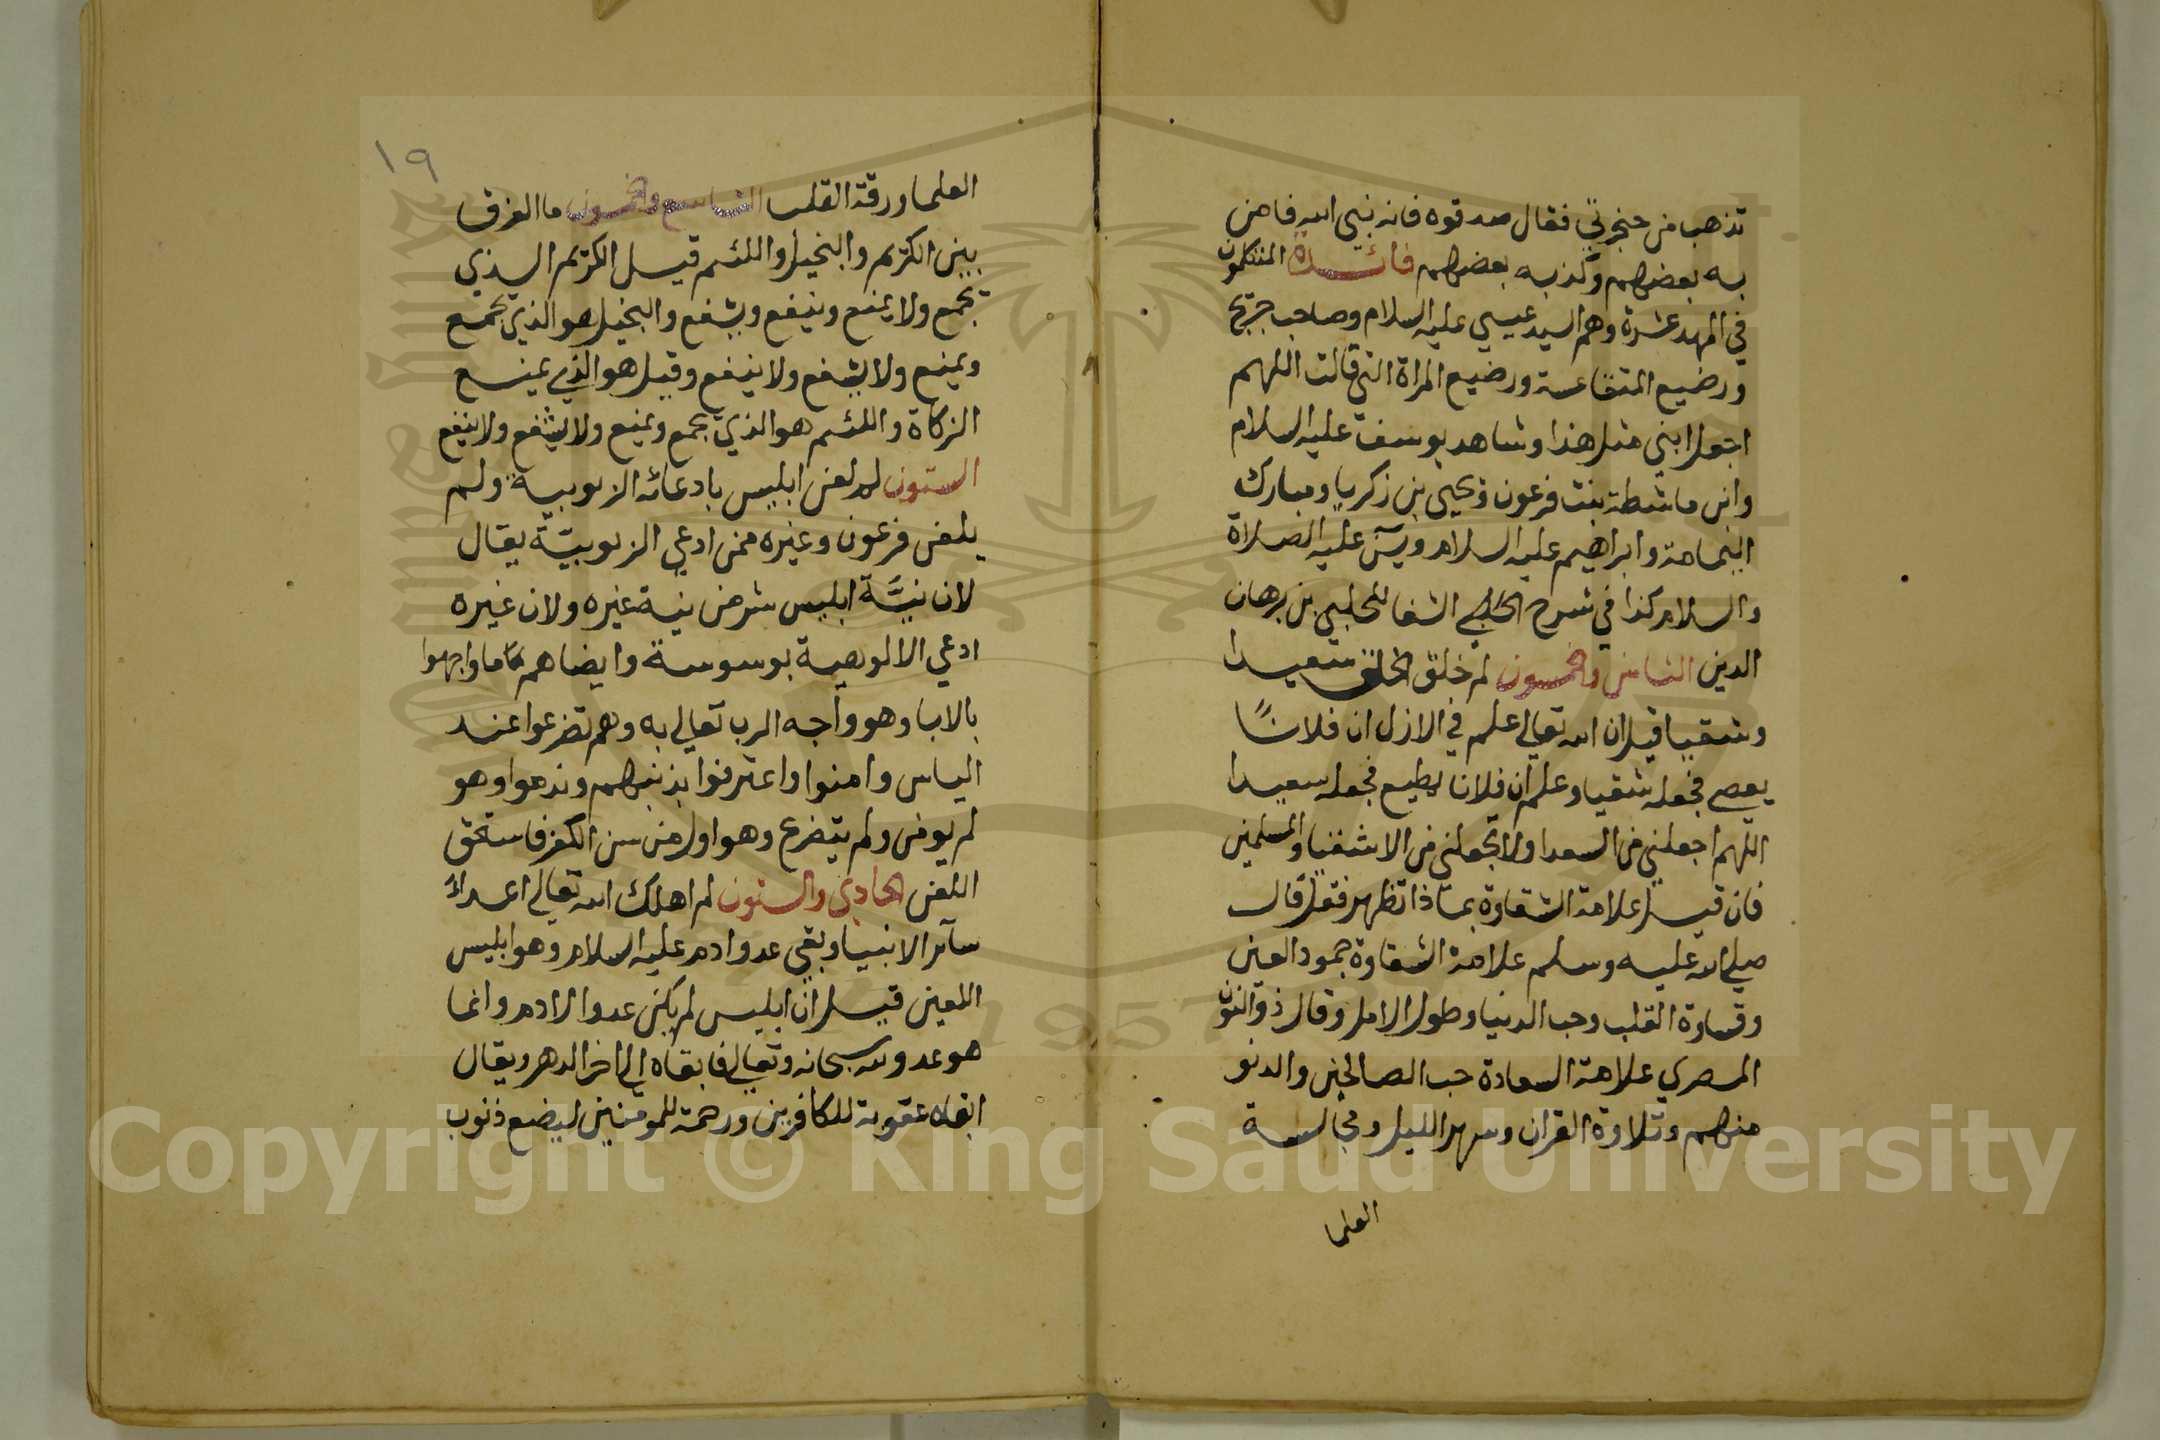 تذهب من حنجرتي فقال صدقوه فانه نبي الله فامن
به بعضهم وكذب به بعضهم فائدة المتكلمون
في المهد عشرة وهم السيد عيسي عليه السلام وصاحب جريج
ورضيع المتقاعسة ورضيع المراة التي قالت اللهم
اجعل ابني مثل هذا وشاهد يوسف عليه السلام
وابن ماشطة بنت فرعون ويحيى بن زكريا ومبارك
اليمامة وابراهيم عليه السلام ويس عليه الصلاة
والسلام كذا في شرح الشفا للحلبي بن برهان
الدين الثامن والخمسون لم خلق الخلق سعيدا
وشقيا قيل ان الله تعالي علم في الازل ان فلانًا
يعصي فجعله شقيا وعلم ان فلانا يطيع فجعله سعيدا
اللهم اجعلني من السعدا ولا تجعلني من الاشقيا والمسلمين
فان قيل علامة الشقاوة بماذا تظهر فقل قال
صلي الله عليه وسلم علامة الشقاوة جمود العين
وقساوة القلب وحب الدنيا وطول الامل وقال ذو النون
المصري علامة السعادة حب الصالحين والدنو
منهم وتلاوة القران وسهر الليل ومجالسة
العلما
١٩
العلما ورقة القلب التاسع والخمسون ما الفرق
بين الكريم والبخيل واللئيم قيل الكريم الذي
يجمع ولا يمنع وينفع ويشفع والبخيل هو الذي يجمع
ويمنع ولا يشفع ولا ينفع وقيل هو الذي يمنع
الزكاة واللئيم هو الذي يجمع ويمنع ولا يشفع ولا ينفع
الستون لم لعن ابليس بادعائه الربوبية ولم
يلعن فرعون وغيره ممن ادعي الربوبيّة يقال
لان نيَّة ابليس شر من نية غيره ولان غيره
ادعي الالوهية بوسوسة وايضا هم ما واجهوا
بالابا وهو واجه الرب تعالي به وهم تضرعوا عند
الياس وامنوا واعترفوا بذنبهم وندموا وهو
لم يومن ولم يتضرع وهو اول من سن الكفر فاستحق
اللعن الحادي والستون لم اهلك الله تعالي اعداءً
سآئر الانبيا وبقي عدو ادم عليه السلام وهو ابليس
اللعين قيل ان ابليس لم يكن عدوا لادم وانما
هو عدو لله سبحانه وتعالي فابقاه الي اخر الدهر ويقال
ابقاه عقوبة للكافرين ورحمة للمومنين ليضع ذنوب
Copyright © King Saud University
1957